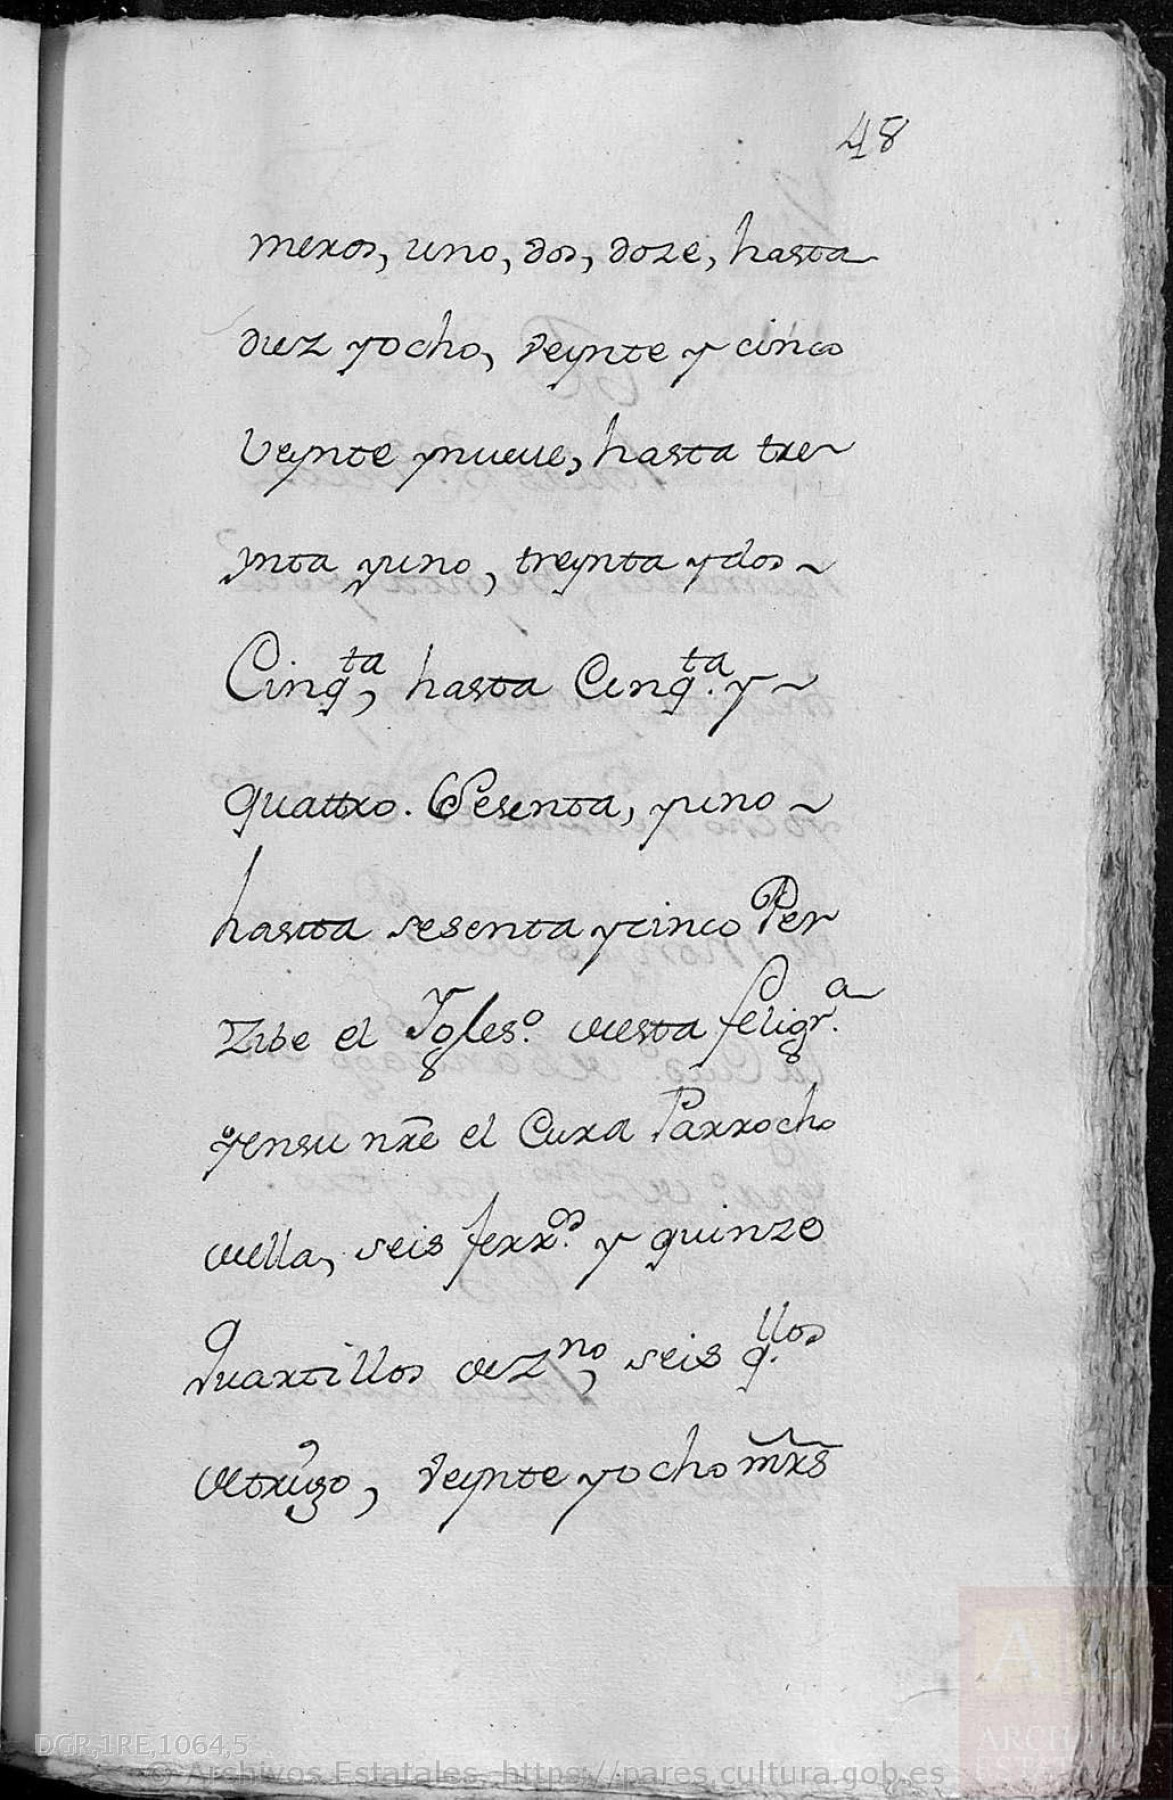 48
meros, uno, dos, doze, hasta
diez yocho, veynte y cinco
Veynte ynueue, hasta tre~
ynta yuno, treynta ydos ~
Cinq.ta, hasta Cinq.ta y ~
quattro. Sesenta, yuno ~
hasta sesenta ycinco Per
Zibe el Ygles.o desta feligr.a
yensu nre el Cura Parrocho
della, seis ferr.os y quinze
quartillos dez.no, seis q.llos
detrigo, veynte yocho mrs
DGR,1RE,1064,5
© Archivos Estatales, https://pares.cultura.gob.es